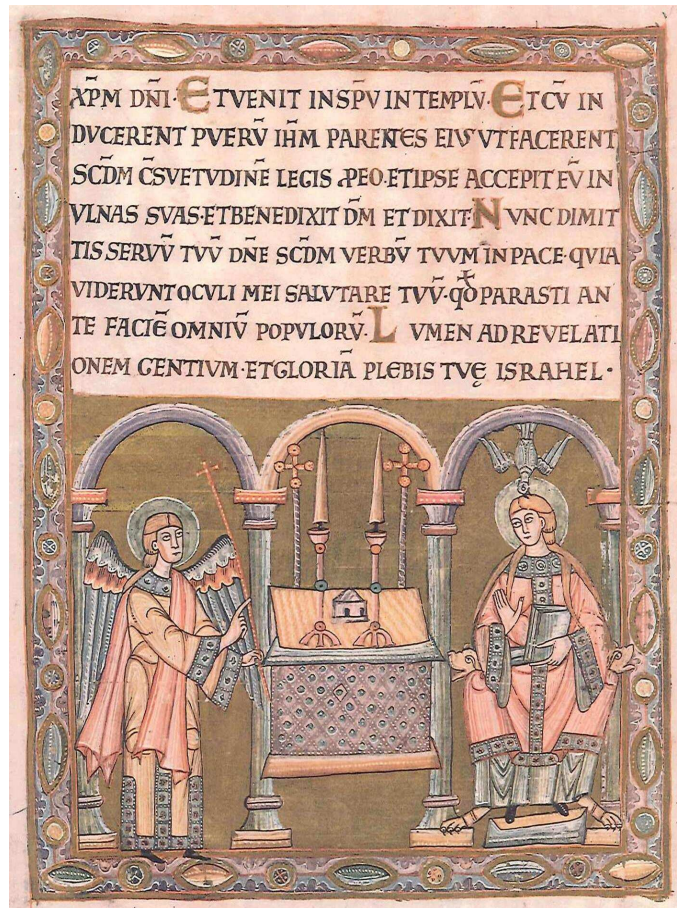 XP̄M DN̄I·ETVENIT INSP̄V INTEMPLV̄·ETCV̄ IN
DVCERENT PVERV̄ IH̄M PARENTES EIVS VTFACERENT
SCD̄M C̄SVETVDINĒ LEGIS ꝓEO·ETIPSE ACCEPIT EV̄ IN
VLNAS SVAS·ETBENEDIXIT DM̄ ET DIXIT·NVNC DIMIT
TIS SERVV̄ TVV̄ DN̄E SCD̄M VERBV̄ TVVM IN PACE·QVIA
VIDERVNT OCVLI MEI SALVTARE TVV̄·QD̄ PARASTI AN
TE FACIĒ OMNIV̄ POPVLORV̄·LVMEN AD REVELATI
ONEM GENTIVM·ETGLORIĀ PLEBIS TVĘ ISRAHEL·